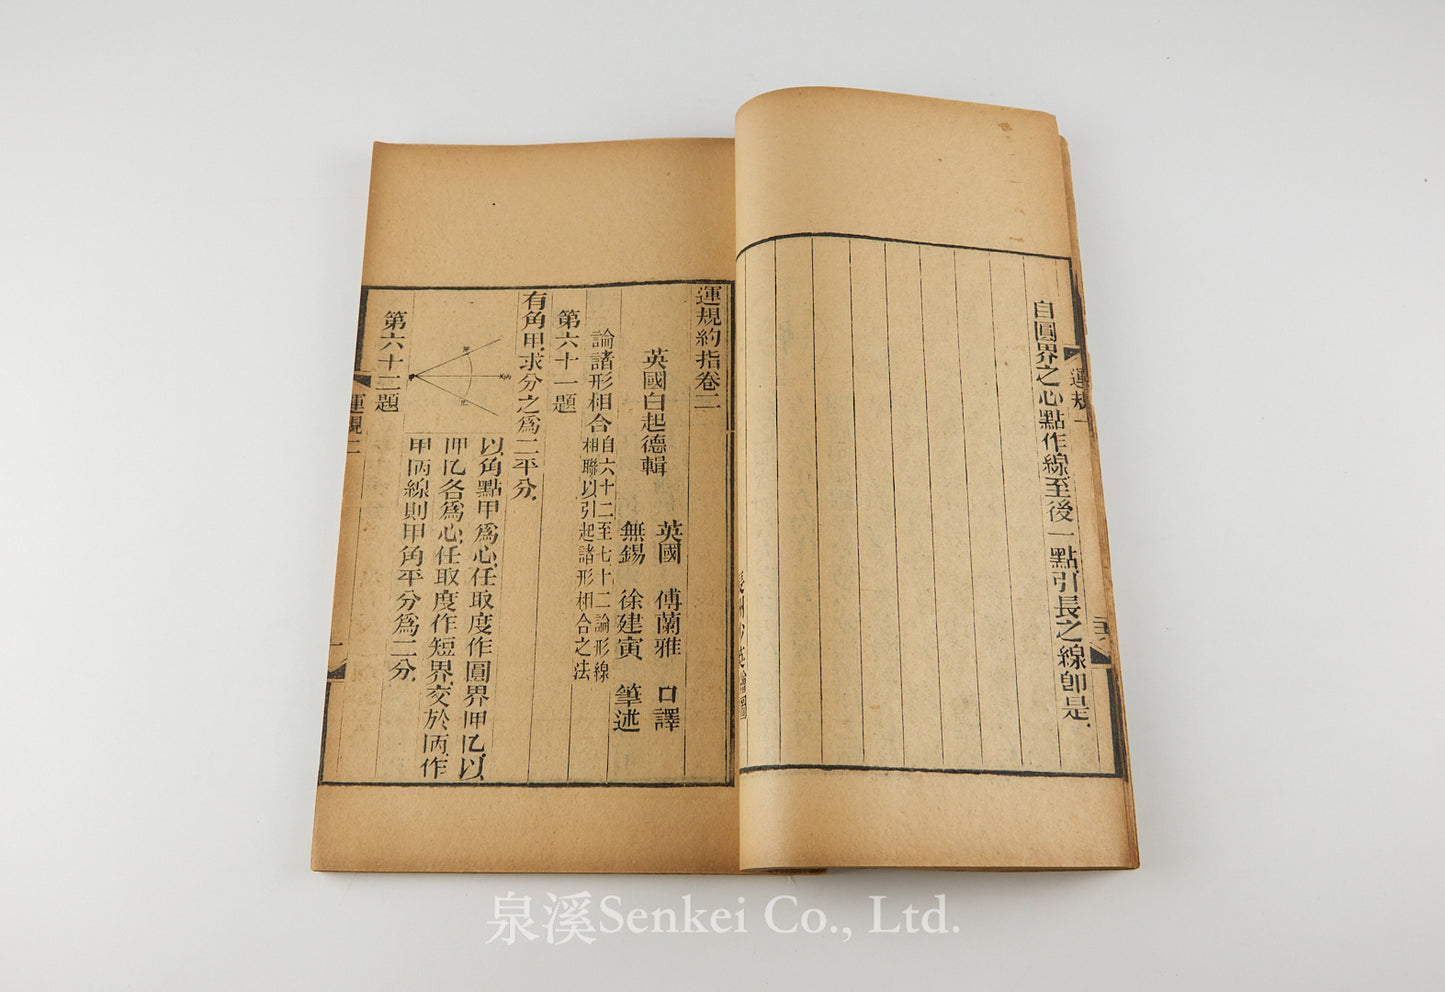 自圓界之心點作線至後一點引長之線卽是
運規一
運規約指卷二
英國白起德輯
英國 傅蘭雅 口譯
無錫 徐建寅 筆述
論諸形相合自六十二至七十二論形線
相聯以引起諸形相合之法
第六十一題
有角甲求分之爲二平分
以角點甲爲心任取度作圓界呷𠮙以
呷𠮙各爲心任取度作短界交於㖤作
甲㖤線則甲角平分爲二分
第六十二題
運規二
一
泉溪Senkei Co., Ltd.